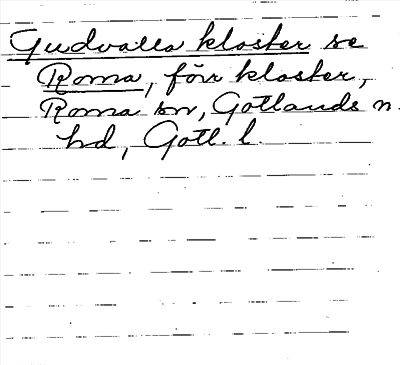 Gudvalla kloster se
Roma, förr kloster,
Roma sn, Gotlands n.
hd, Gotl. l.